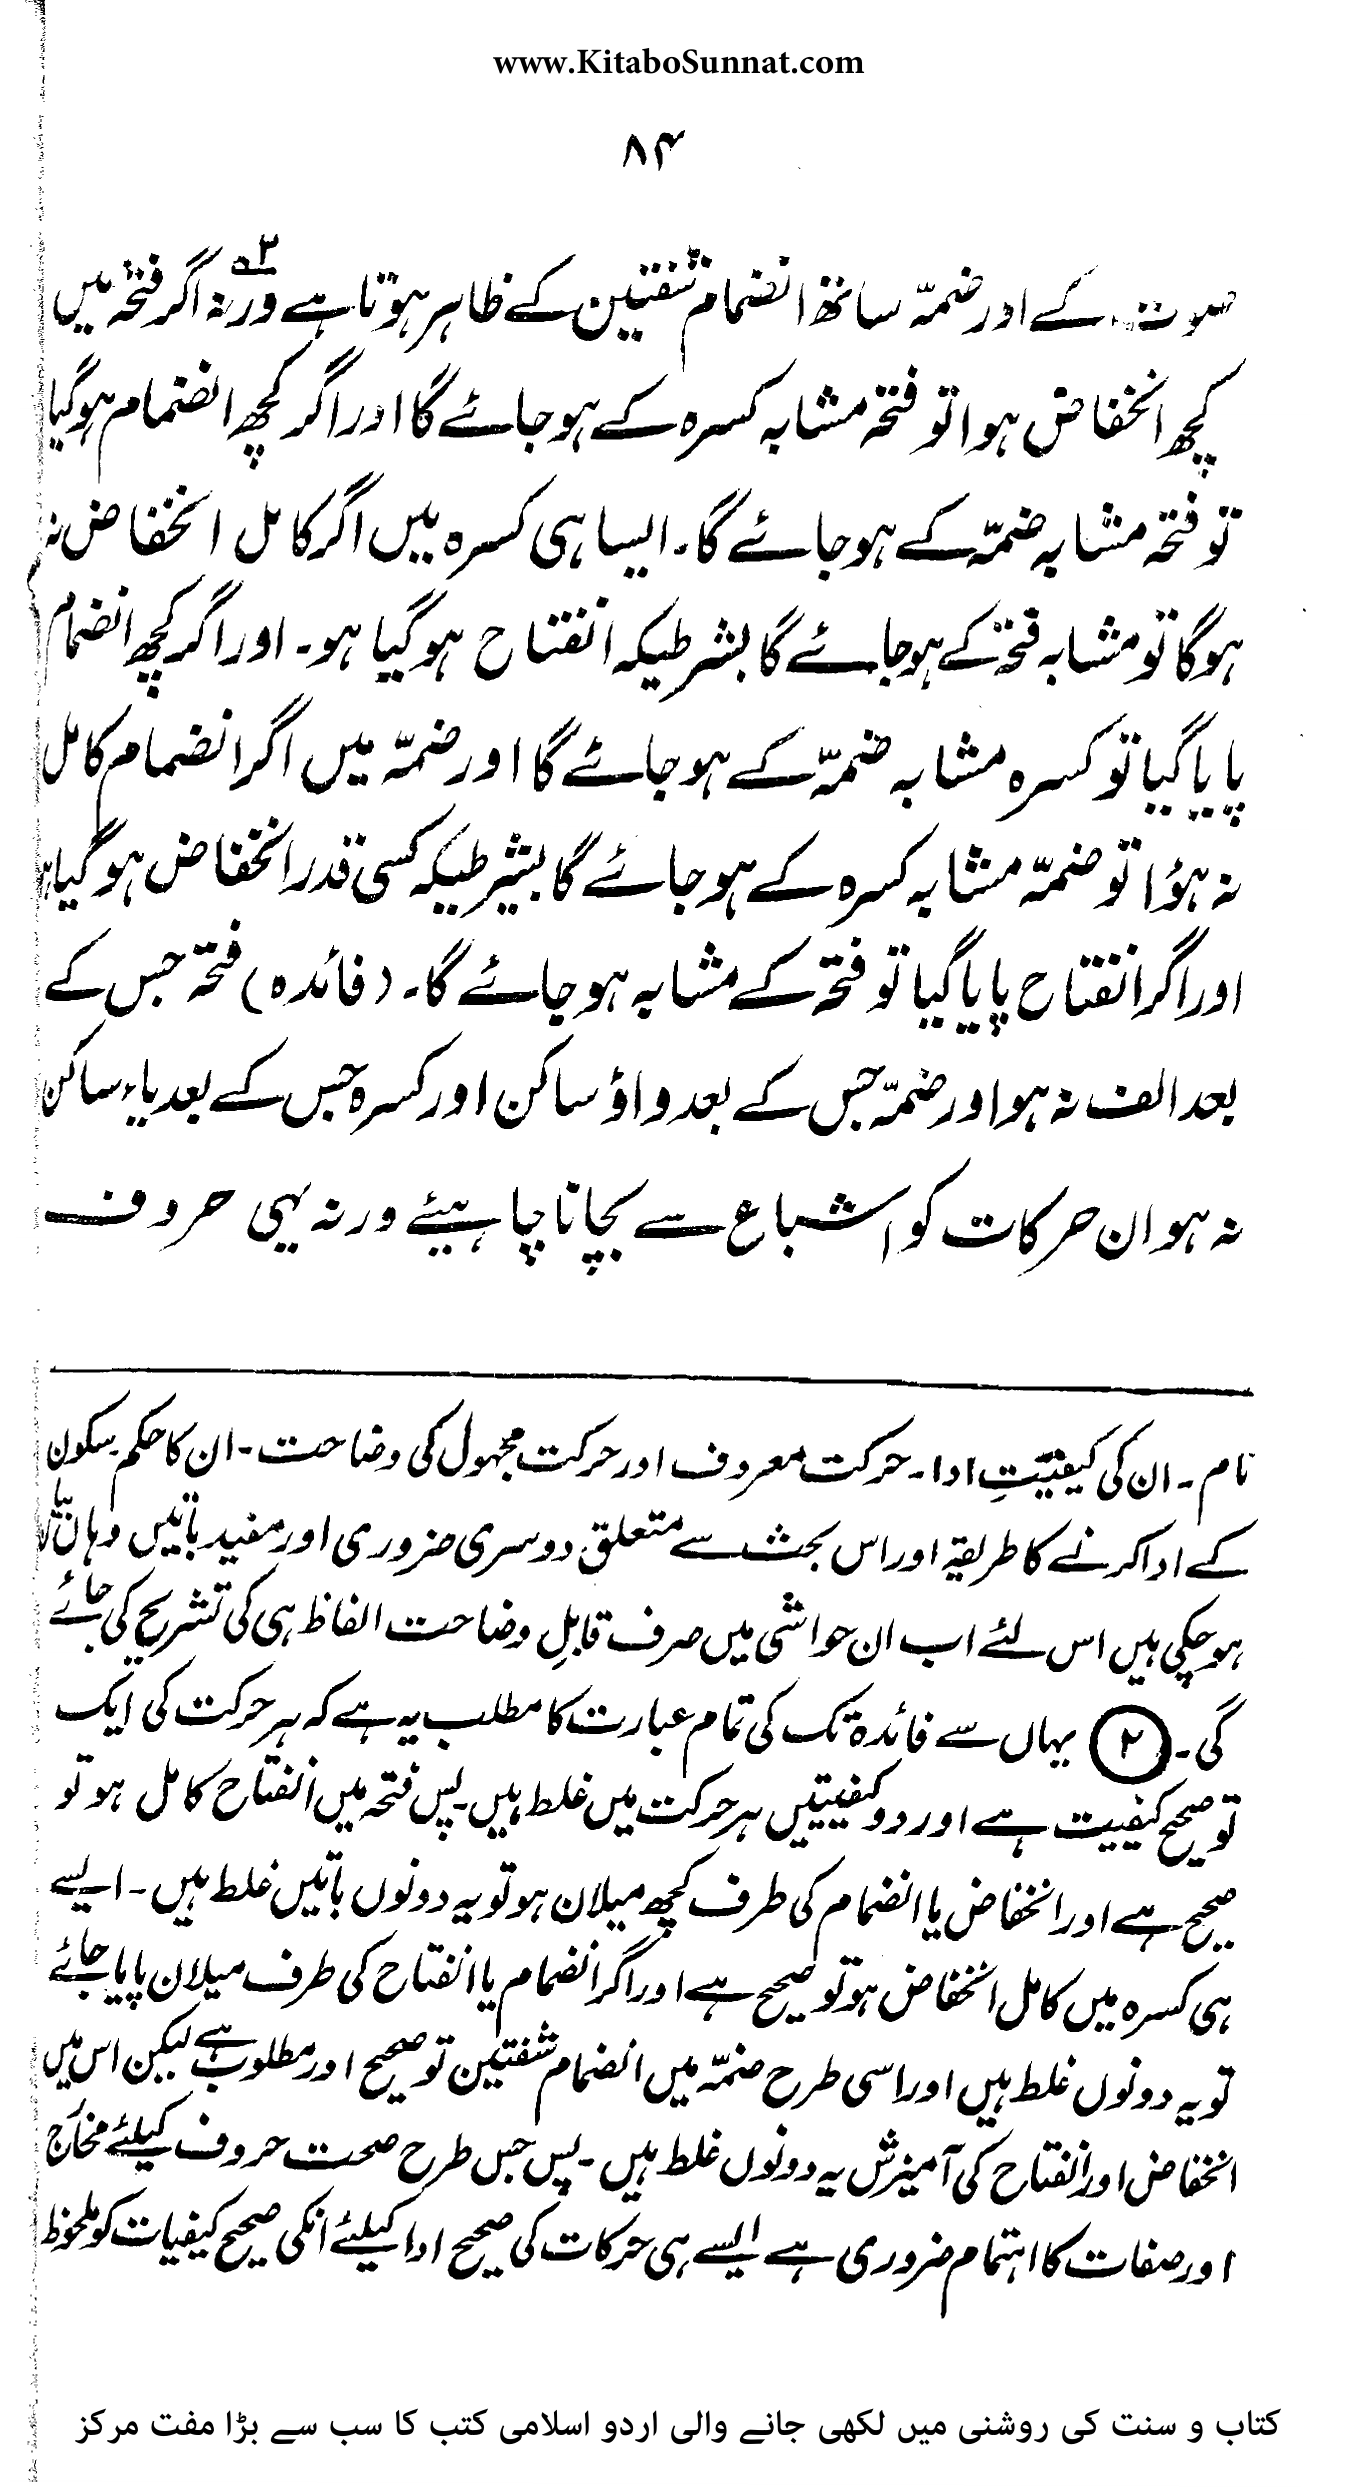 www.KitaboSunnat.com
۸۴
صوت کے اور ضمہّ ساتھ انضمام شفتین کے ظاہر ہوتا ہے ورنہ ۲؎ اگر فتحہ میں
کچھ انخفاض ہوا تو فتحہ مشابہ کسرہ کے ہو جائے گا اور اگر کچھ انضمام ہو گیا
تو فتحہ مشابہ ضمہّ کے ہو جائے گا۔ ایسا ہی کسرہ میں اگر کامل انخفاض نہ
ہو گا تو مشابہ فتحہ کے ہو جائے گا بشرطیکہ انفتاح ہو گیا ہو۔ اور اگر کچھ انضمام
پایا گیا تو کسرہ مشابہ ضمہّ کے ہو جائے گا اور ضمہّ میں اگر انضمام کامل
نہ ہؤا تو ضمہّ مشابہ کسرہ کے ہو جائے گا بشرطیکہ کسی قدر انخفاض ہو گیا ہو
اور اگر انفتاح پایا گیا تو فتحہ کے مشابہ ہو جائے گا۔ (فائدہ) فتحہ جس کے
بعد الف نہ ہو اور ضمہّ جس کے بعد واؤ ساکن اور کسرہ جس کے بعد یاء ساکن
نہ ہو ان حرکات کو اشباع سے بچانا چاہیئے ورنہ یہی حروف
نام۔ ان کی کیفیّتِ ادا۔ حرکت معروف اور حرکت مجہول کی وضاحت۔ ان کا حکم سکون
کے ادا کرنے کا طریقہ اور اس بحث سے متعلق دوسری ضروری اور مفید باتیں وہاں بیان
ہو چکی ہیں اس لئے اب ان حواشی میں صرف قابلِ وضاحت الفاظ ہی کی تشریح کی جائے
گی۔ ۲ یہاں سے فائدہ تک کی تمام عبارت کا مطلب یہ ہے کہ ہر حرکت کی ایک
تو صحیح کیفیت ہے اور دو کیفیتیں ہر حرکت میں غلط ہیں۔ پس فتحہ میں انفتاح کامل ہو تو
صحیح ہے اور انخفاض یا انضمام کی طرف کچھ میلان ہو تو یہ دونوں باتیں غلط ہیں۔ ایسے
ہی کسرہ میں کامل انخفاض ہو تو صحیح ہے اور اگر انضمام یا انفتاح کی طرف میلان پایا جائے
تو یہ دونوں غلط ہیں اور اسی طرح ضمہّ میں انضمام شفتین تو صحیح اور مطلوب ہے لیکن اس میں
انخفاض اور انفتاح کی آمیزش یہ دونوں غلط ہیں۔ پس جس طرح صحت حروف کیلئے مخارج
اور صفات کا اہتمام ضروری ہے ایسے ہی حرکات کی صحیح ادا کیلئے انکی صحیح کیفیات کو ملحوظ
کتاب و سنت کی روشنی میں لکھی جانے والی اردو اسلامی کتب کا سب سے بڑا مفت مرکز